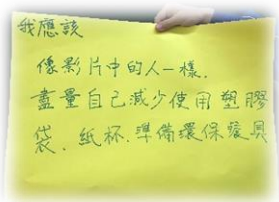 我應該
像影片中的人一樣.
盡量自己減少使用塑膠
袋.紙杯.準備環保餐具